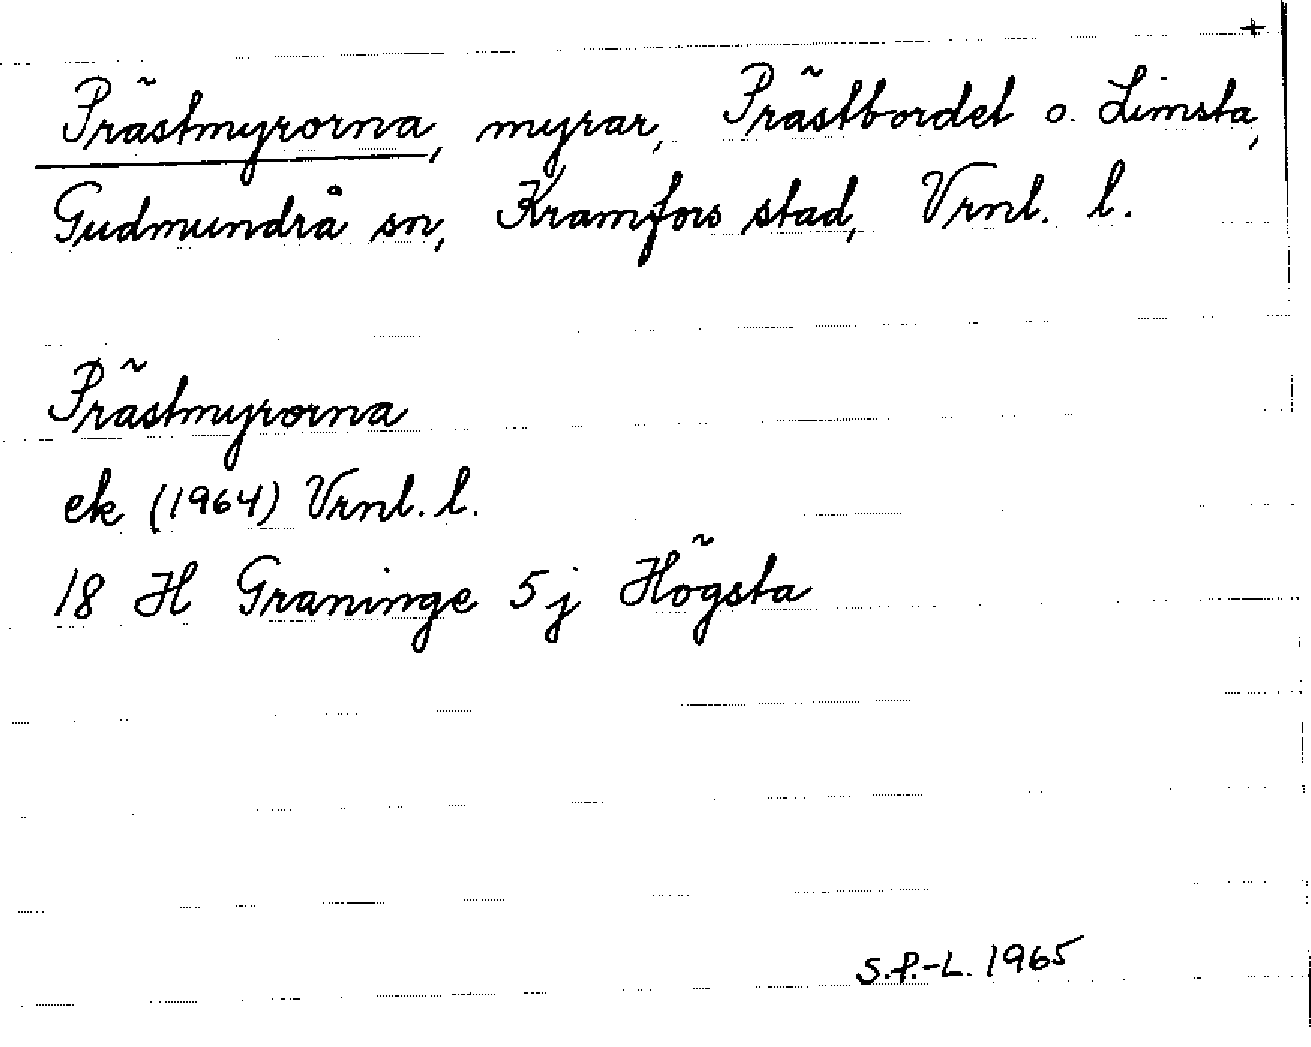 +
Prästmyrorna, myrar, Prästbordet o. Limsta,
Gudmundrå sn, Kramfors stad, Vrnl. l.
Prästmyrorna
ek (1964) Vrnl. l.
18 H Graninge 5 j Högsta
S.P.-L. 1965